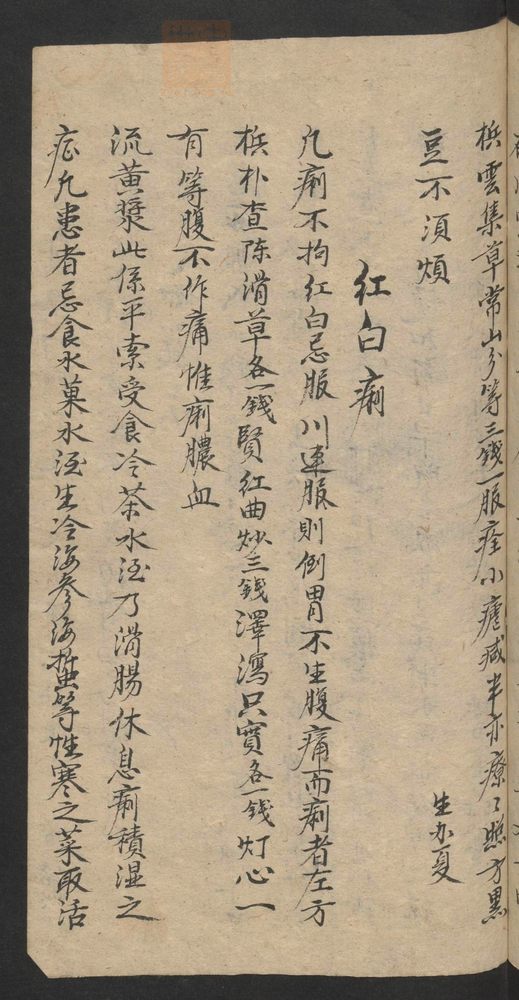 梹雲集草常山分等三錢一服痊小瘧减半亦療〻照方黑
豆不須煩
生办夏
红白痢
凢痢不拘红白忌服川連服則倒胃不生腹痛而痢者左方
梹朴查陈滑草各一錢賢红曲炒三錢澤瀉只實各一錢灯心一
有等腹不作痛惟痢膿血
流黄漿此係平素受食冷茶水酒乃滑腸休息痢積濕之
症凢患者忌食水菓水酒生冷海參海蜇等性寒之菜取活